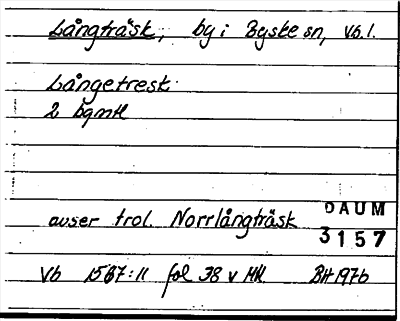 Långträsk, by i Byske sn, Vb. l.
Långetresk
2 bgmtl
avser trol. Norrlångträsk
DAUM
3157
Vb 1567:11 fol 38 v MH BH 1976